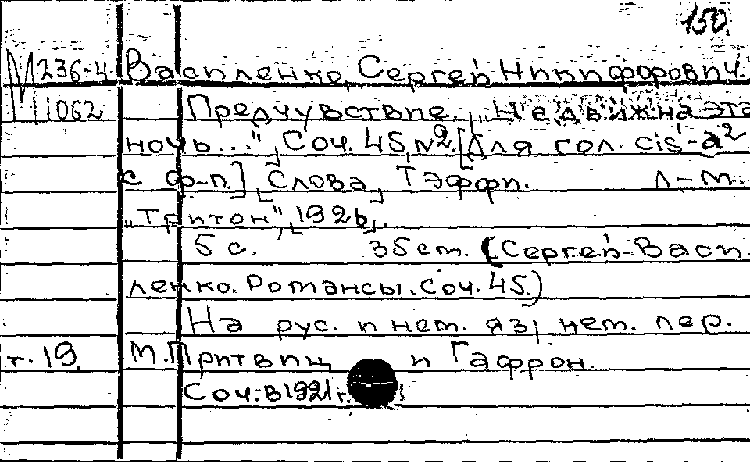 150
М 236-4 Василенко, Сергей Никифорович.
1062 Предчувствие. „Недвижна эта
ночь...", Соч. 45, №2. [Для гол. cis¹-a²
с ф-п.] Слова Тэффи. Л-М.
„Тритон", 1926.
5 с. 35 cm. (Сергей Васи-
ленко. Романсы. Соч. 45.)
На рус. и нем. яз; нем. пер.
т. 19. М. Притвиц и Гафрон.
Соч. в 1921 г.